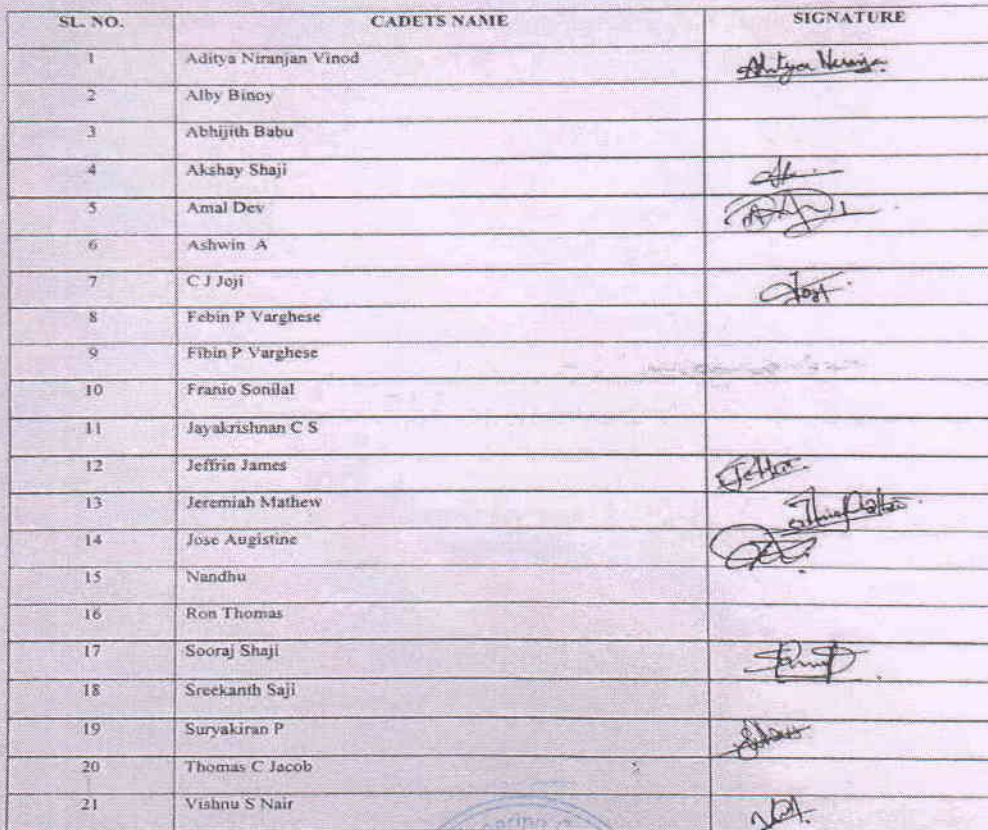 SL. NO. CADETS NAME SIGNATURE
1 Aditya Niranjan Vinod
2 Alby Binoy
3 Abhijith Babu
4 Akshay Shaji
5 Amal Dev
6 Ashwin A
7 C J Joji
8 Febin P Varghese
9 Fibin P Varghese
10 Franio Sonilal
11 Jayakrishnan C S
12 Jeffrin James
13 Jeremiah Mathew
14 Jose Augistine
15 Nandhu
16 Ron Thomas
17 Sooraj Shaji
18 Sreekanth Saji
19 Suryakiran P
20 Thomas C Jacob
21 Vishnu S Nair